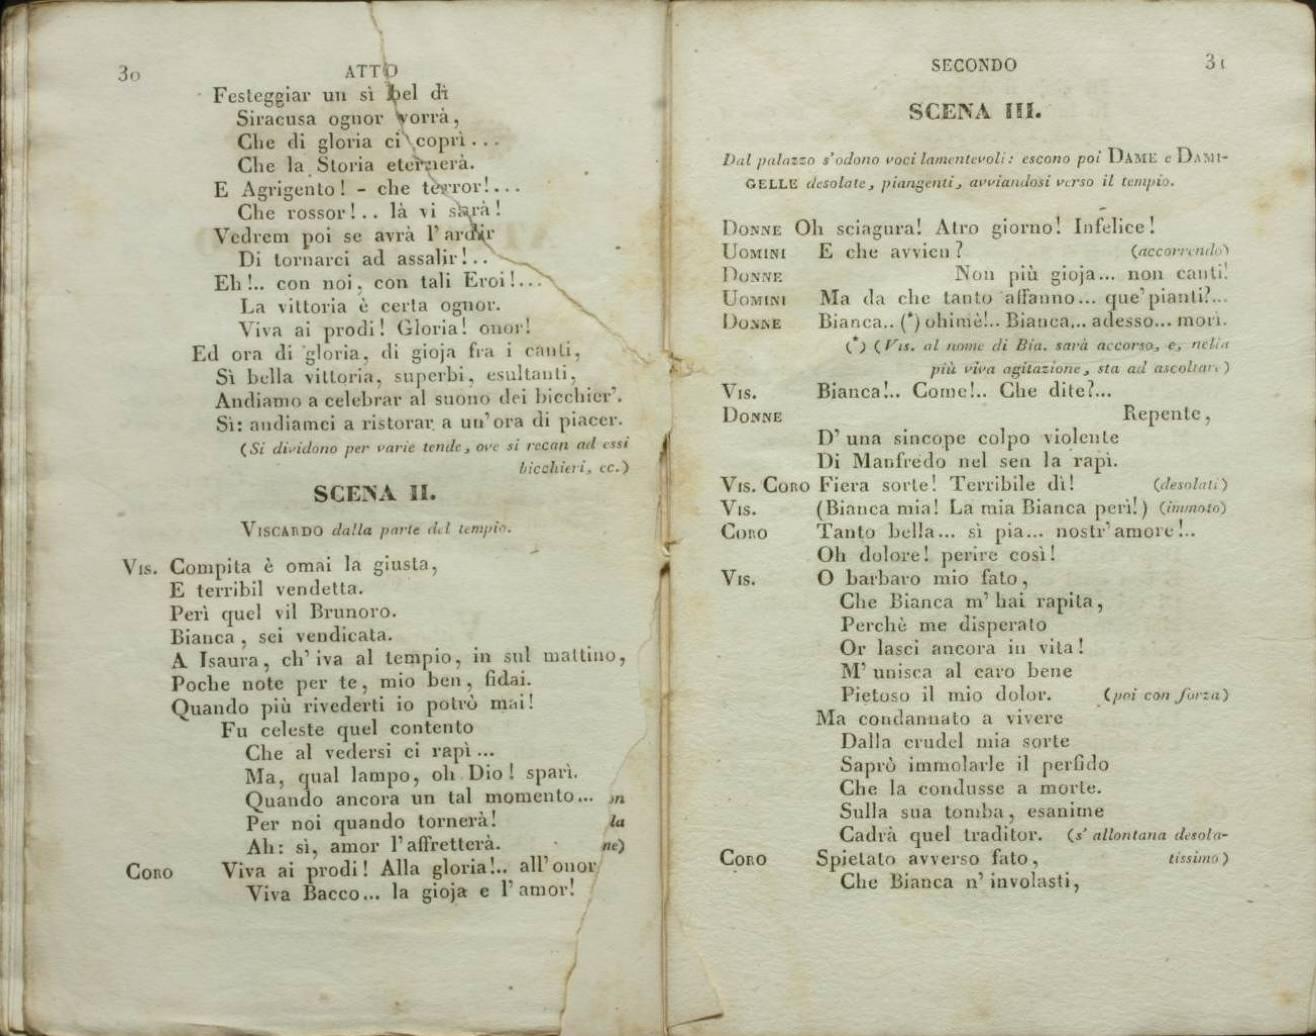 30
ATTO
Festeggiar un sì bel dì
Siracusa ognor vorrà,
Che di gloria ci coprì...
Che la Storia eternerà.
E Agrigento! - che terror!...
Che rossor!.. là vi sarà!
Vedrem poi se avrà l'ardir
Di tornarci ad assalir!..
Eh!.. con noi, con tali Eroi!...
La vittoria è certa ognor.
Viva ai prodi! Gloria! onor!
Ed ora di gloria, di gioja fra i canti,
Sì bella vittoria, superbi, esultanti,
Andiamo a celebrar al suono dei bicchier'.
Sì: andiamci a ristorar a un'ora di piacer.
(Si dividono per varie tende, ove si recan ad essi
bicchieri, ec.)
SCENA II.
VISCARDO dalla parte del tempio.
VIS. Compita è omai la giusta,
E terribil vendetta.
Perì quel vil Brunoro.
Bianca, sei vendicata.
A Isaura, ch'iva al tempio, in sul mattino,
Poche note per te, mio ben, fidai.
Quando più rivederti io potrò mai!
Fu celeste quel contento
Che al vedersi ci rapì...
Ma, qual lampo, oh Dio! sparì.
Quando ancora un tal momento... on
Per noi quando tornerà! la
Ah: sì, amor l'affretterà. ne)
CORO Viva ai prodi! Alla gloria!.. all'onor
Viva Bacco... la gioja e l'amor!
SECONDO
31
SCENA III.
Dal palazzo s'odono voci lamentevoli: escono poi DAME e DAMI-
GELLE desolate, piangenti, avviandosi verso il tempio.
DONNE Oh sciagura! Atro giorno! Infelice!
UOMINI E che avvien? (accorrendo)
DONNE Non più gioja... non canti!
UOMINI Ma da che tanto affanno... que'pianti?...
DONNE Bianca.. (*) ohimè!.. Bianca... adesso... morì.
(*) (Vis. al nome di Bia. sarà accorso, e, nella
più viva agitazione, sta ad ascoltare)
VIS. Bianca!.. Come!.. Che dite?...
DONNE Repente,
D'una sincope colpo violente
Di Manfredo nel sen la rapì.
VIS. CORO Fiera sorte! Terribile dì! (desolati)
VIS. (Bianca mia! La mia Bianca perì!) (immoto)
CORO Tanto bella... sì pia... nostr'amore!..
Oh dolore! perire così!
VIS. O barbaro mio fato,
Che Bianca m'hai rapita,
Perchè me disperato
Or lasci ancora in vita!
M'unisca al caro bene
Pietoso il mio dolor. (poi con forza)
Ma condannato a vivere
Dalla crudel mia sorte
Saprò immolarle il perfido
Che la condusse a morte.
Sulla sua tomba, esanime
Cadrà quel traditor. (s'allontana desola-
CORO Spietato avverso fato, tissimo)
Che Bianca n'involasti,